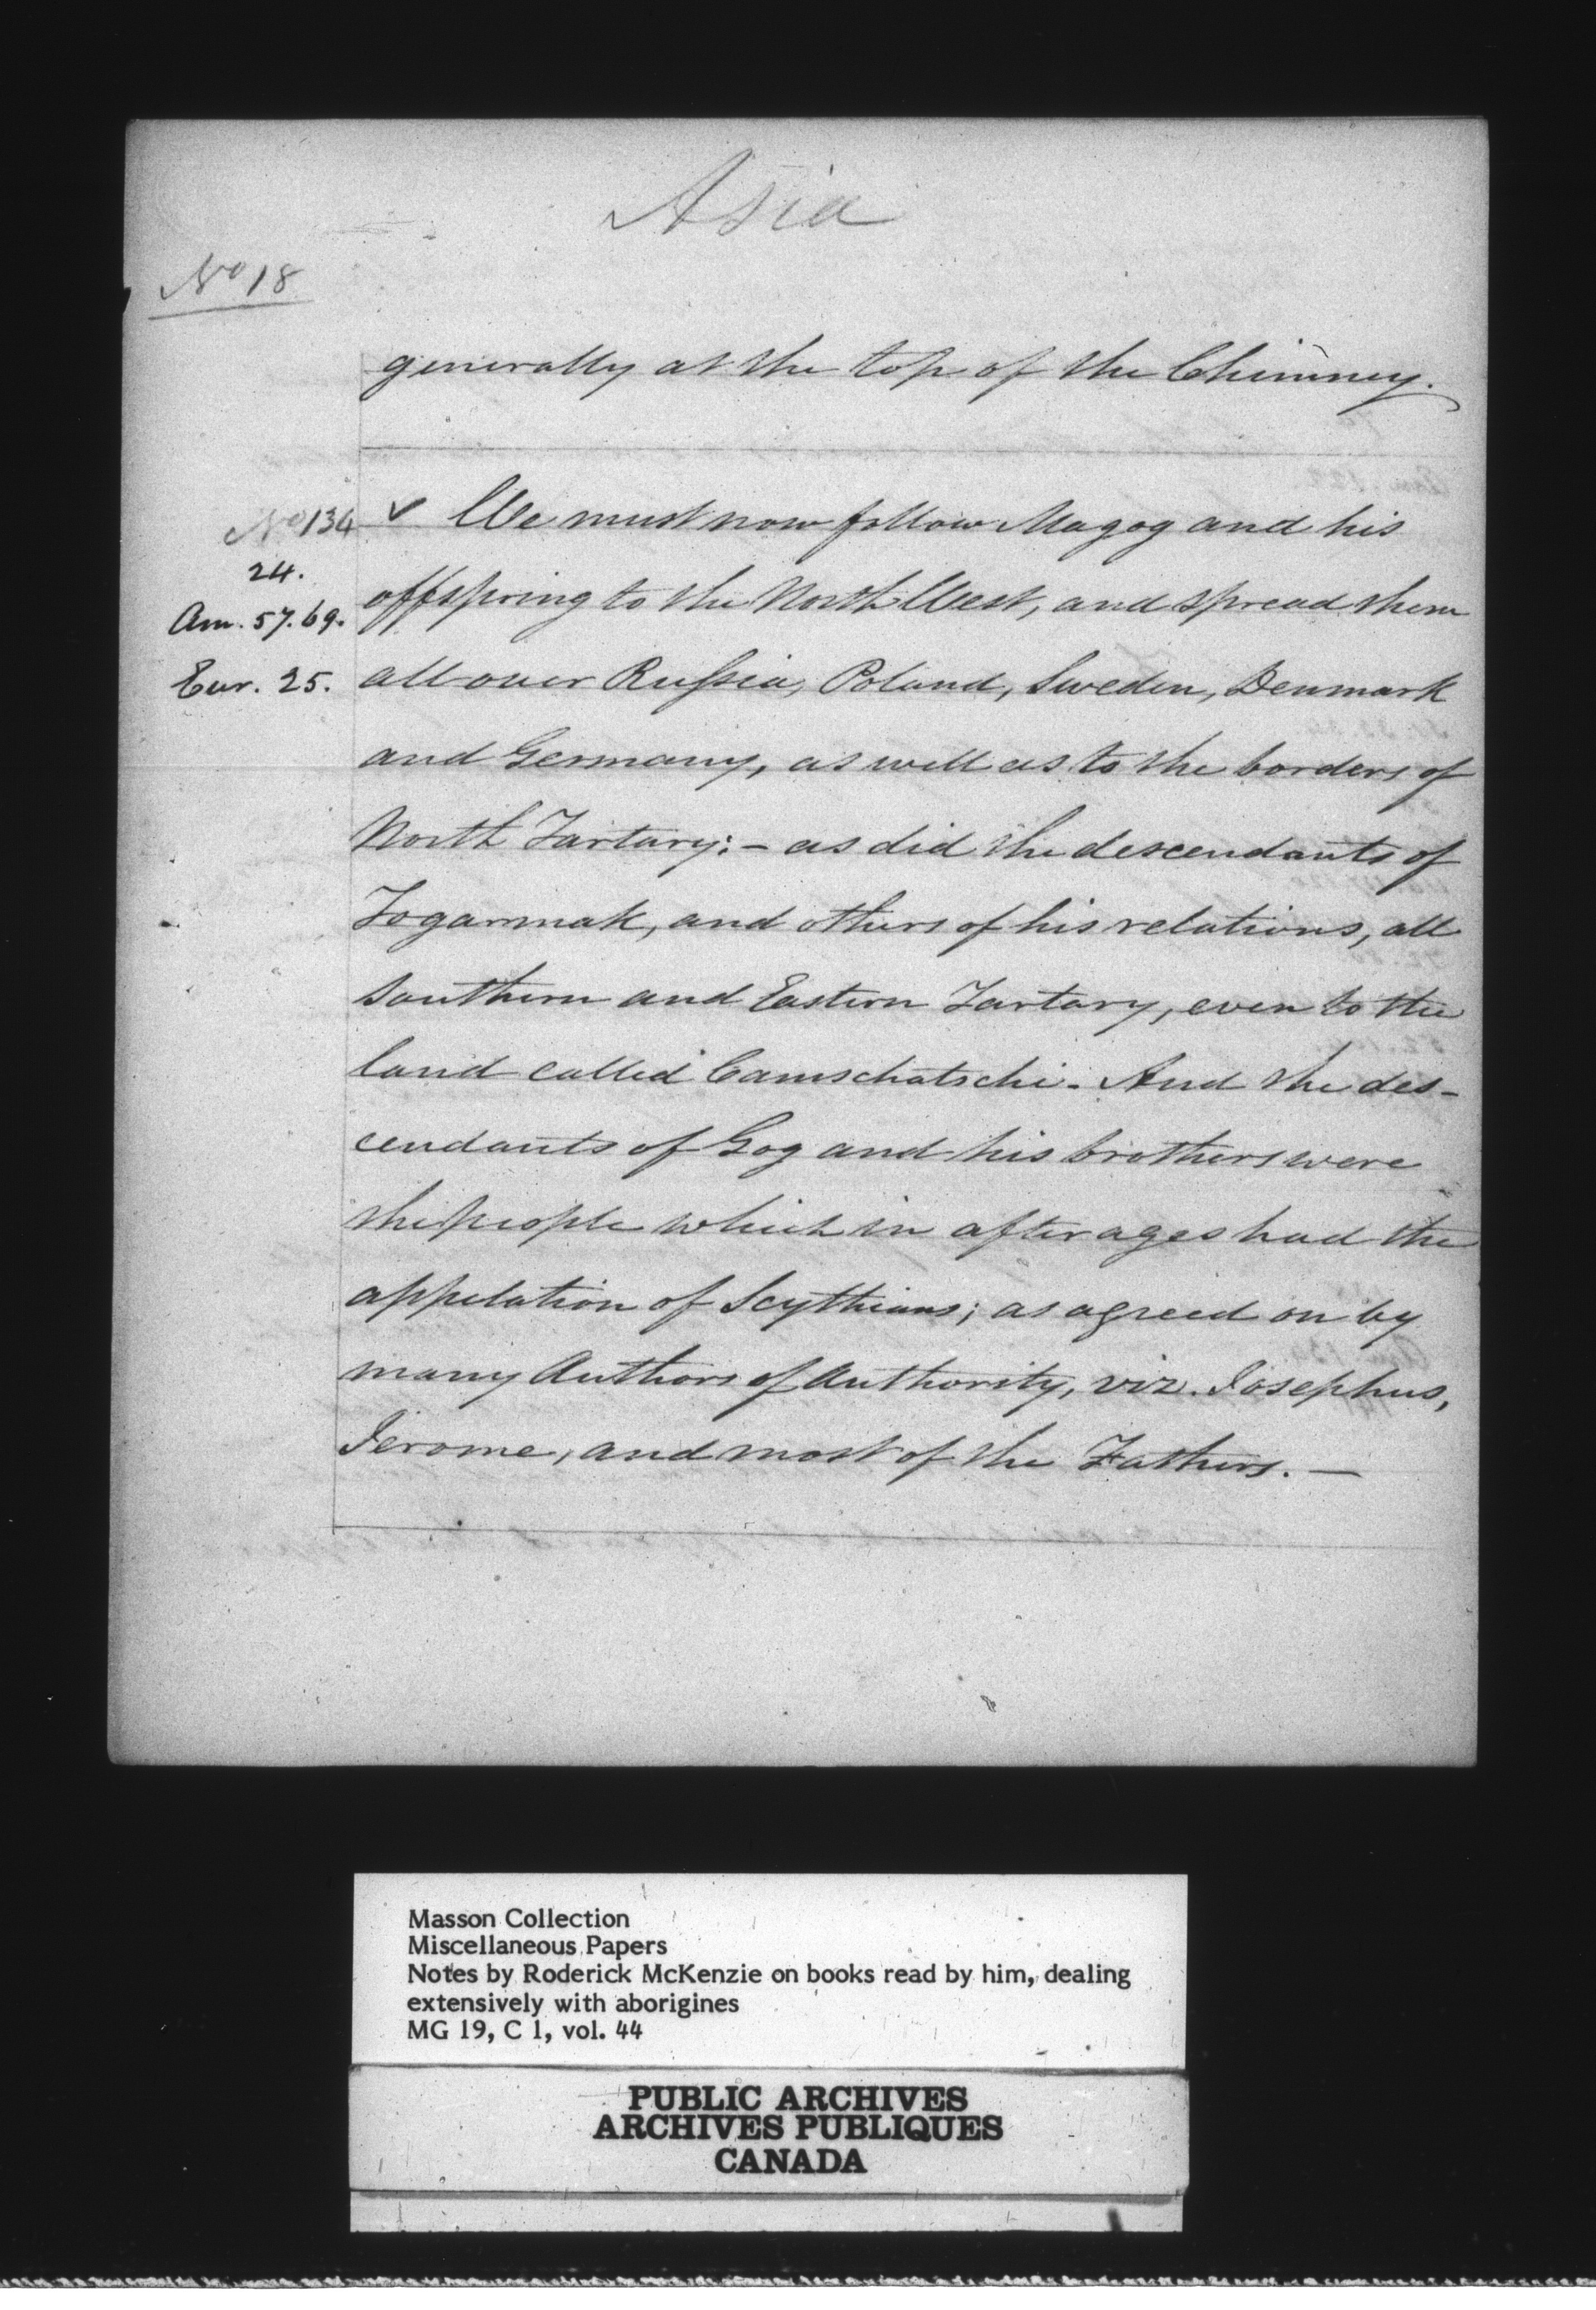 Asia
No 18
generally at the top of the Chimney.
No 134
24.
Am. 57. 69.
Eur. 25.
✓ We must now follow Magog and his
offspring to the North West, and spread them
all over Russia, Poland, Sweden, Denmark
and Germany, as well as to the borders of
North Tartary: – as did the descendants of
Togarmak, and others of his relations, all
Southern and Eastern Tartary, even to the
land called Camschatschi. And the des-
cendants of Gog and his brothers were
the people which in after ages had the
appelation of Scythians; as agreed on by
many Authors of Authority, viz. Josephus,
Jerome, and most of the Fathers. —
Masson Collection
Miscellaneous Papers
Notes by Roderick McKenzie on books read by him, dealing
extensively with aborigines
MG 19, C 1, vol. 44
PUBLIC ARCHIVES
ARCHIVES PUBLIQUES
CANADA